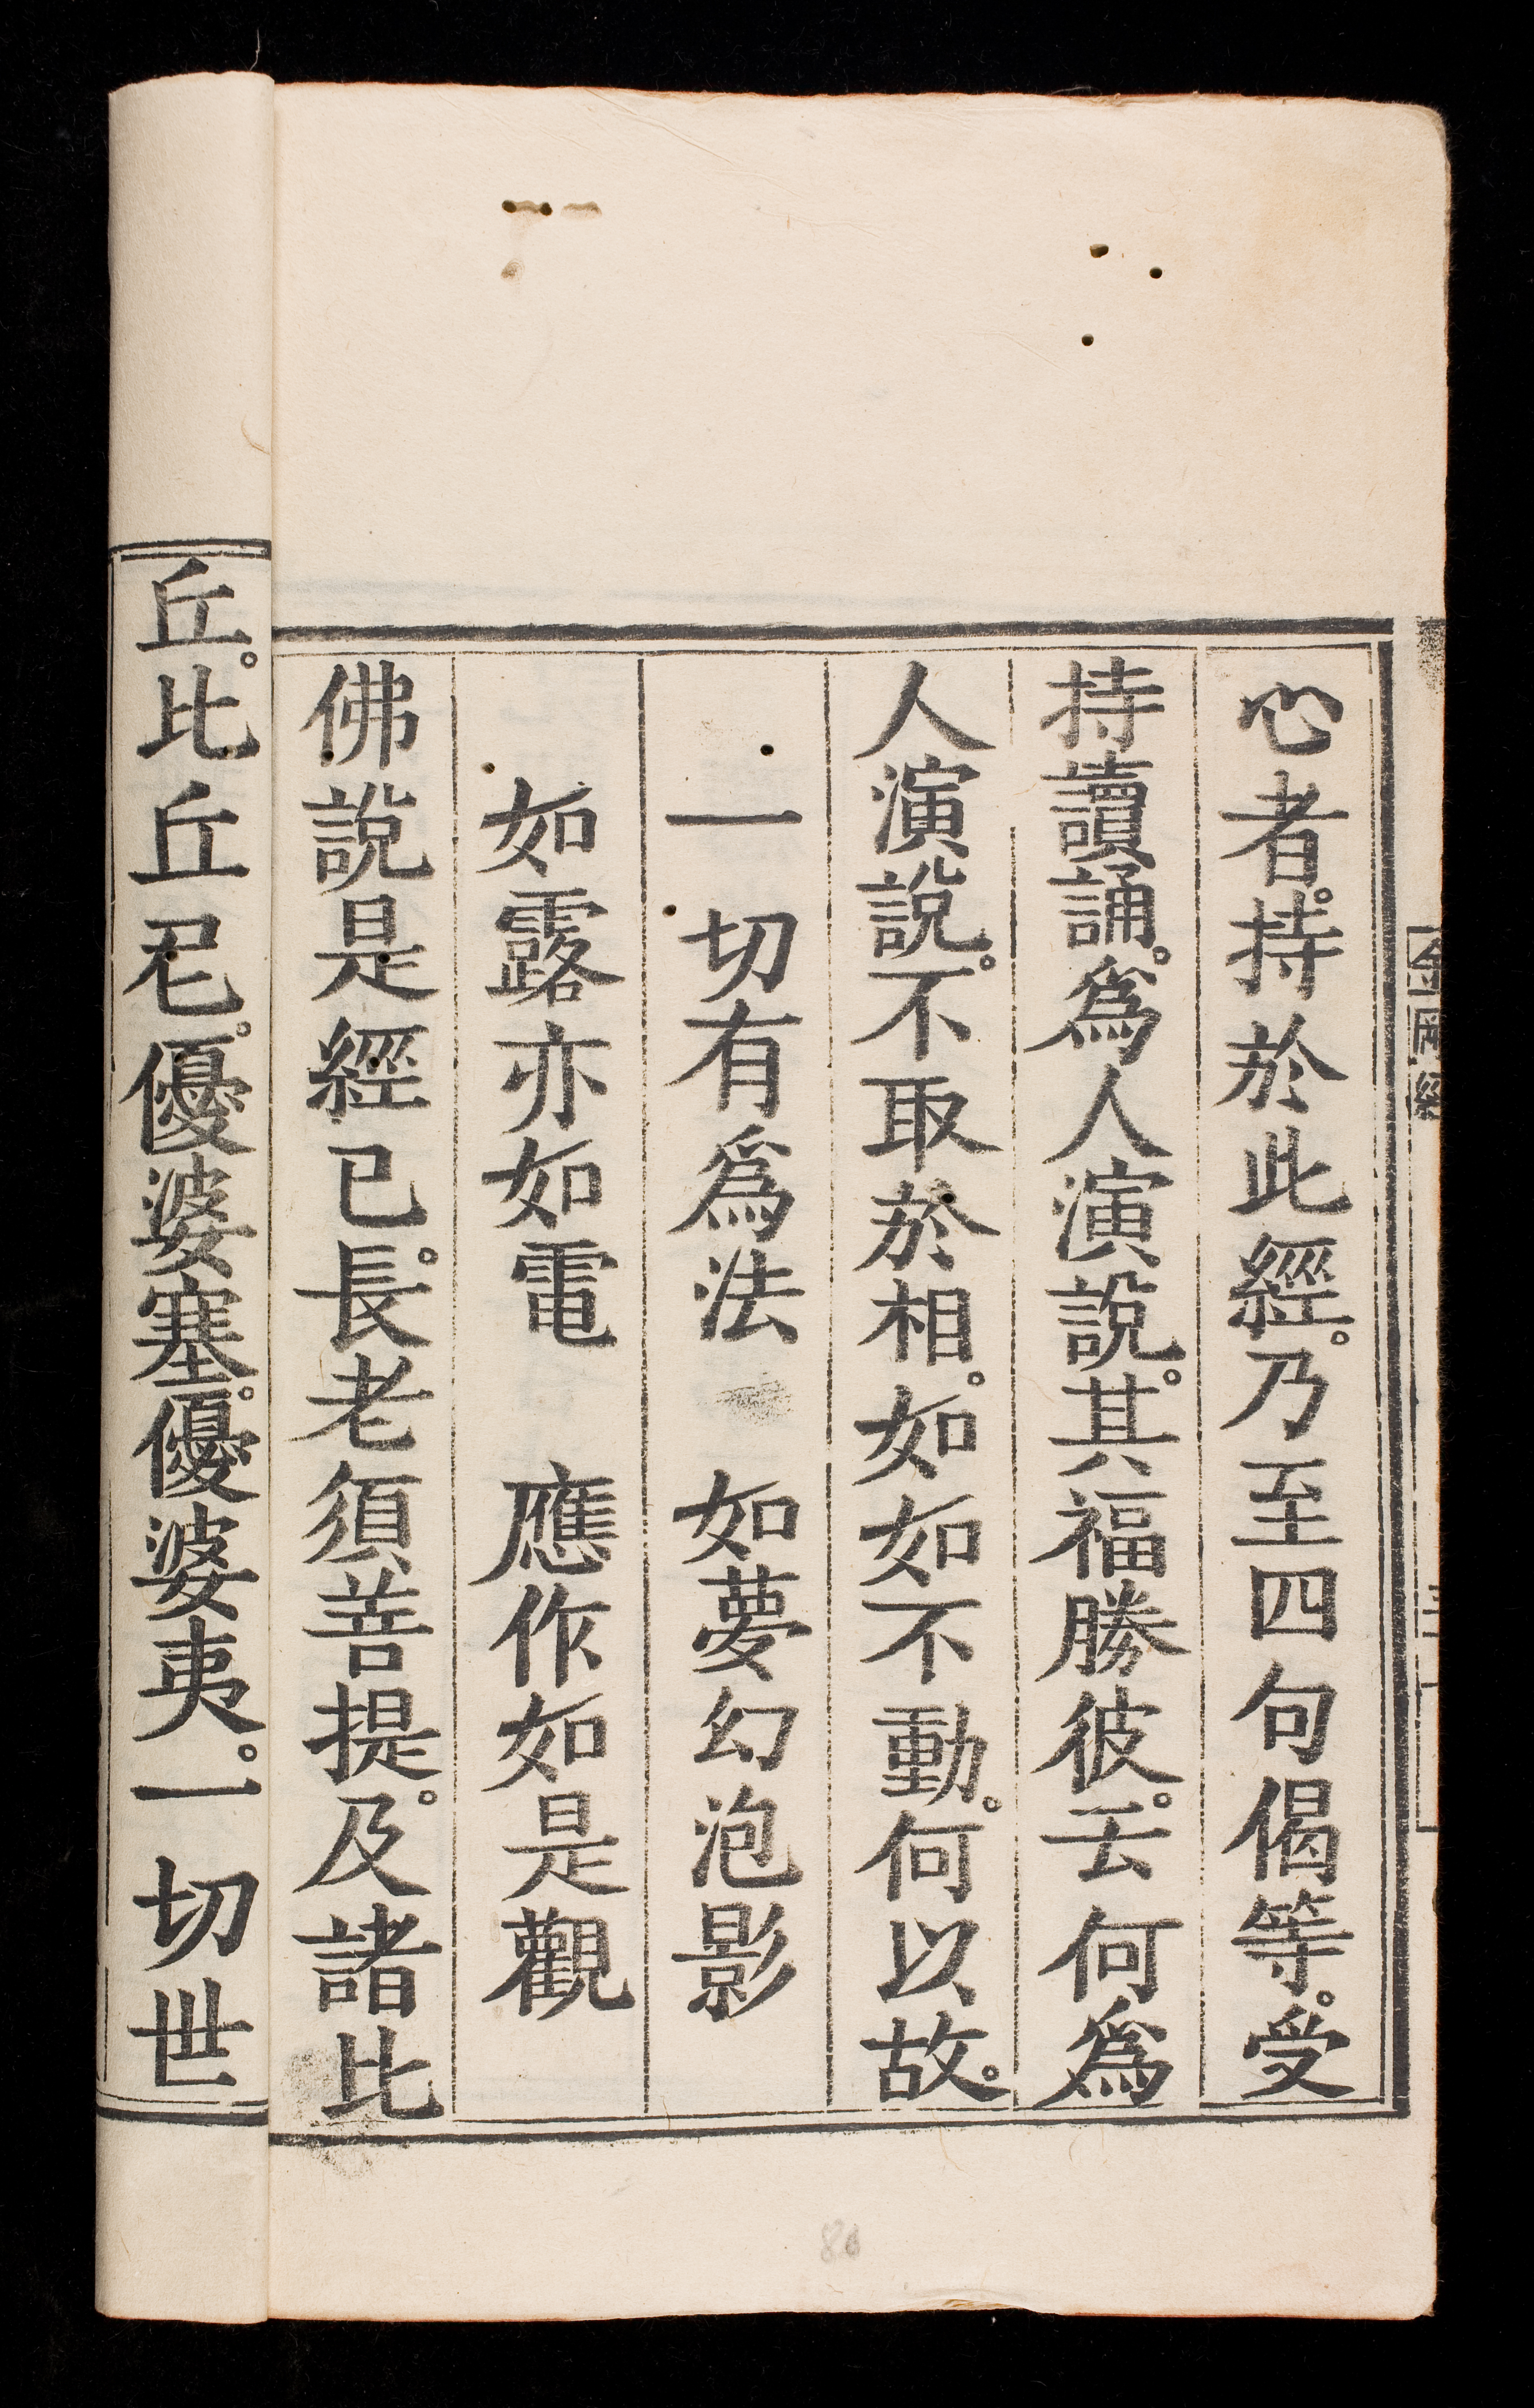 心者。持於此經。乃至四句偈等。受
持讀誦。爲人演說。其福勝彼。云何爲
人演說。不取於相。如如不動。何以故。
一切有爲法 如夢幻泡影
如露亦如電 應作如是觀
佛說是經已。長老須菩提。及諸比
丘。比丘尼。優婆塞。優婆夷。一切世
金剛經
80